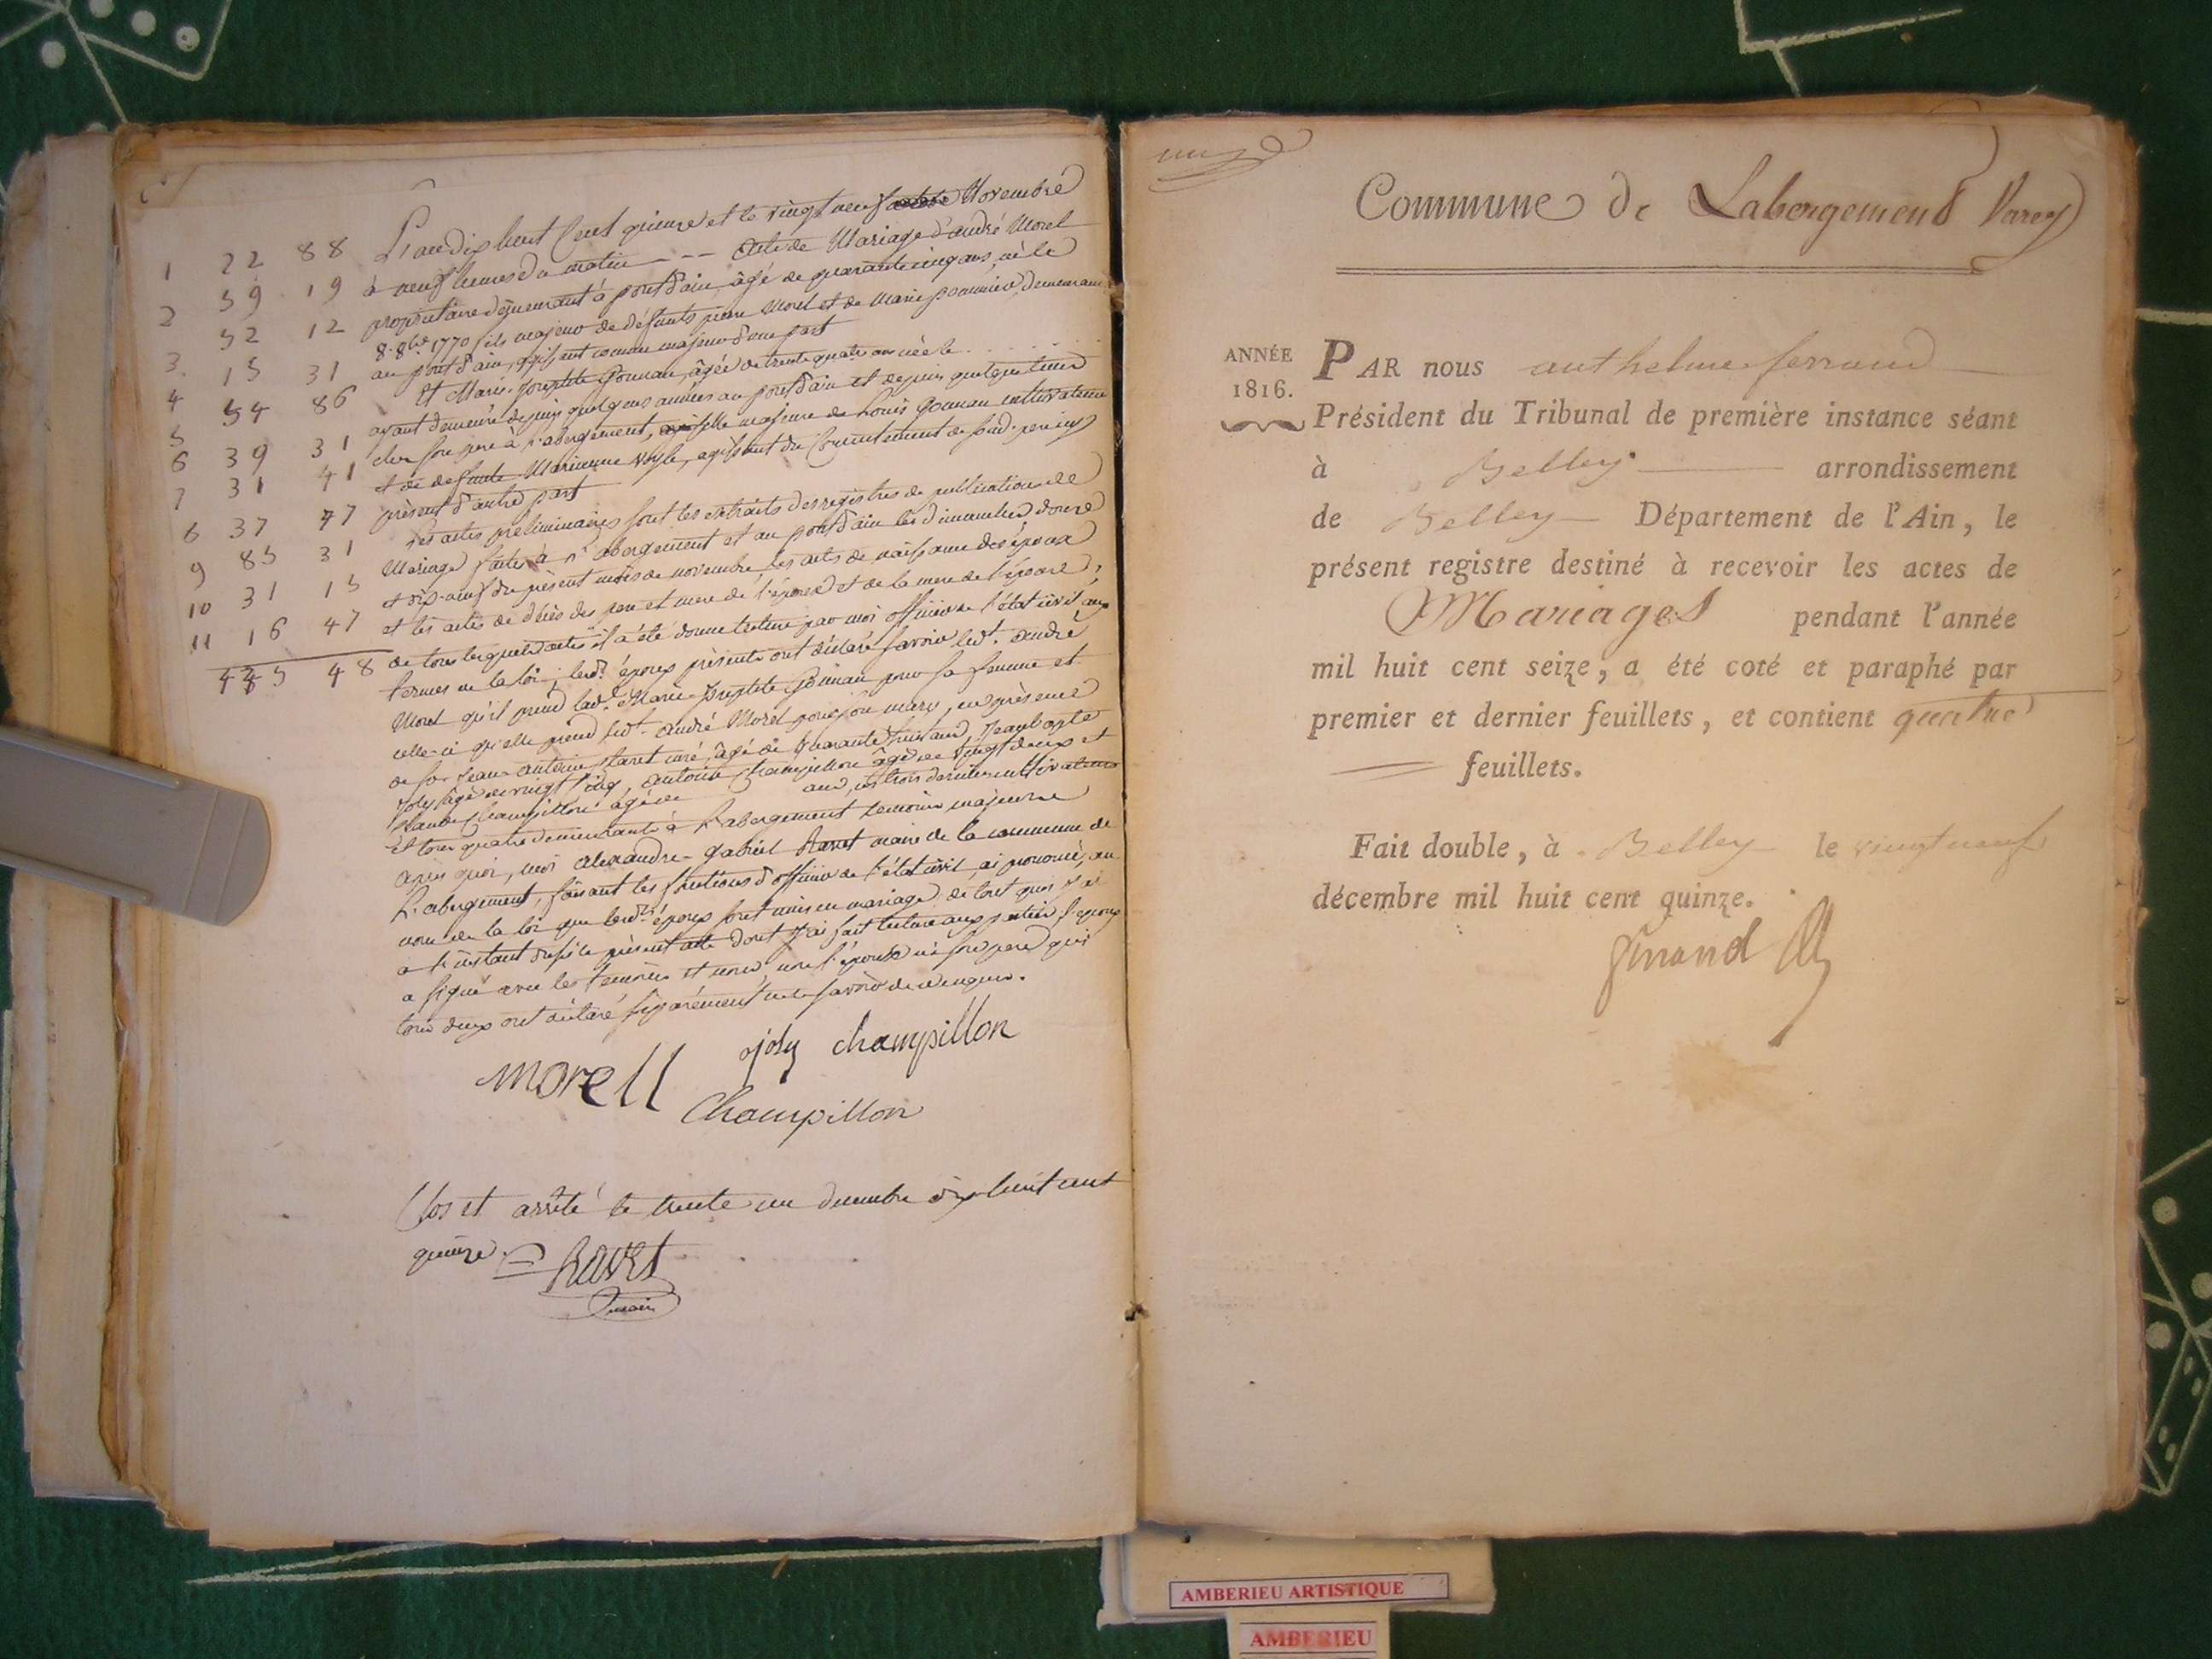 1 22 88
2 59 19
3. 52 12
4 15 31
5 54 86
6 39 31
7 31 41
8 37 47
9 85 31
10 31 15
11 16 47
445 48
L'an dix huit cent quinze et le vingt neuf Novembre
à neuf heures du matin -- acte de Mariage d'andré Morel
propriétaire demeurant à pont d'ain, âgé de quarante cinq ans, né le
8. 8bre 1770 fils majeur de défunts pierre Morel et de Marie pommier, demeurant
au pont d'ain, agissant comme majeur d'une part
Et Marie-Josephte Gonnan, âgée de trente quatre ans née le
ayant demeuré depuis quelques années au pont d'ain et depuis quelque tems
chez son père à l'abergement, fille majeure de Louis Gonnan cultivateur
et de defunte Marianne, agissant du consentement de sond. père ici
présent d'autre part
Les actes preliminaires sont les extraits des registres de publications de
Mariage faites à l'abergement et au pont d'ain les dimanches douze
et dix-neuf du présent mois de novembre, les acts de naissance des époux
et les actes de décès des pere et mere de l'époux et de la mere de l'épouse,
de tous lesquels actes il a été donné lecture par moi officier de l'état civil aux
termes de la loi, lesd. époux présents ont déclaré savoir led. andré
Morel qu'il prend lad. Marie-Josephte Gonnan pour sa femme et
celle-ci qu'elle prend led. andré Morel pour son mary, en présence
de sr. Jean-antoine Ravet curé, âgé de quarante huit ans, Jean bapte
Joly âgé de vingt cinq, antoine Champillon âgé de vingt deux et
Claude Champillon âgé de ans, les trois derniers cultivateurs
et tous quatre demeurants à L'abergement temoins majeurs
après quoi, moi alexandre-gabriel Ravet maire de la commune de
L'abergement, faisant les fonctions d'officier de l'état civil, ai prononcé, au
nom de la loi que lesdts. époux sont unis en mariage, de tout quoi j'ai
à l'instant dressé le présent acte dont j'ai fait lecture aux parties l'époux
a signé avec les temoins et nous, non l'épouse ni son pere qui
tous deux ont déclaré séparément ne le savoir de ce enquis.
morell joly champillon
Champillon
Clos et arrêté le trente un decembre dix huit cent
quinze. Ravet
maire
Commune de Labergement Varey
ANNÉE
1816.
PAR nous anthelme ferrand
Président du Tribunal de première instance séant
à Belley arrondissement
de Belley Département de l'Ain, le
présent registre destiné à recevoir les actes de
Mariages pendant l'année
mil huit cent seize, a été coté et paraphé par
premier et dernier feuillets, et contient quatre
feuillets.
Fait double, à Belley le vingt neuf
décembre mil huit cent quinze.
ferrand
AMBERIEU ARTISTIQUE
AMBERIEU